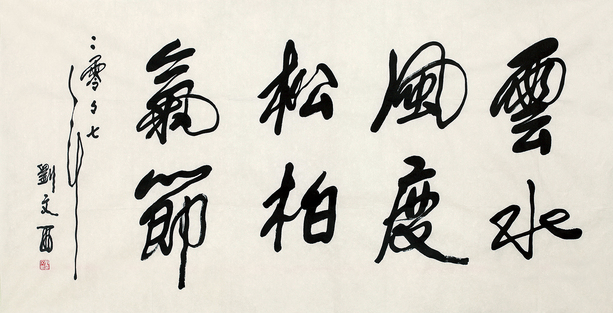 雲水
風度
松柏
氣節
二零零七年
劉文西